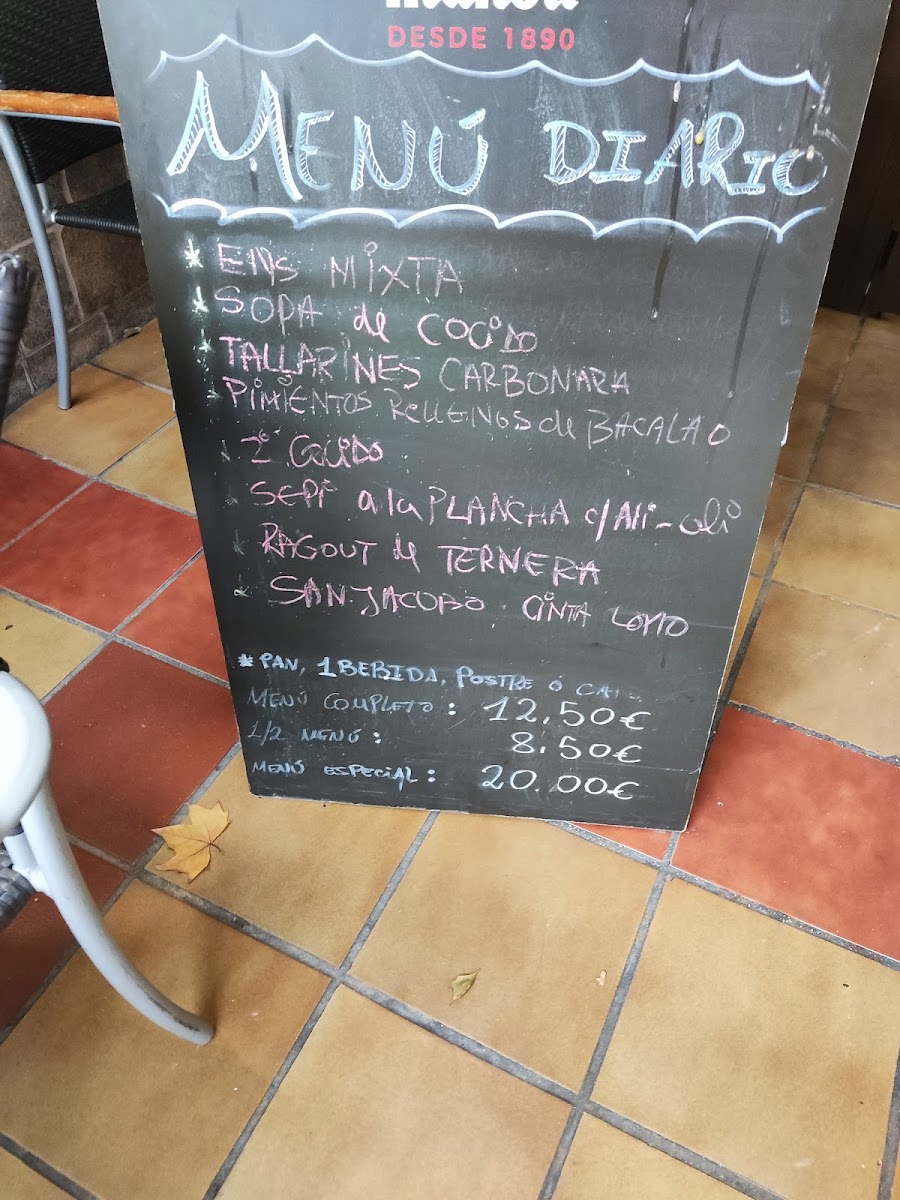 DESDE 1890
MENÚ DIARIO
* ENS MIXTA
* SOPA de COCIDO
* TALLARINES CARBONARA
* PIMIENTOS RELLENOS de BACALAO
2º COCIDO
SEPI a la PLANCHA c/ Ali-oli
* RAGOUT de TERNERA
* SAN JACOBO CINTA LOMO
* PAN, 1 BEBIDA, POSTRE ó
MENÚ COMPLETO: 12.50€
1/2 MENÚ: 8.50€
MENÚ ESPECIAL: 20.00€